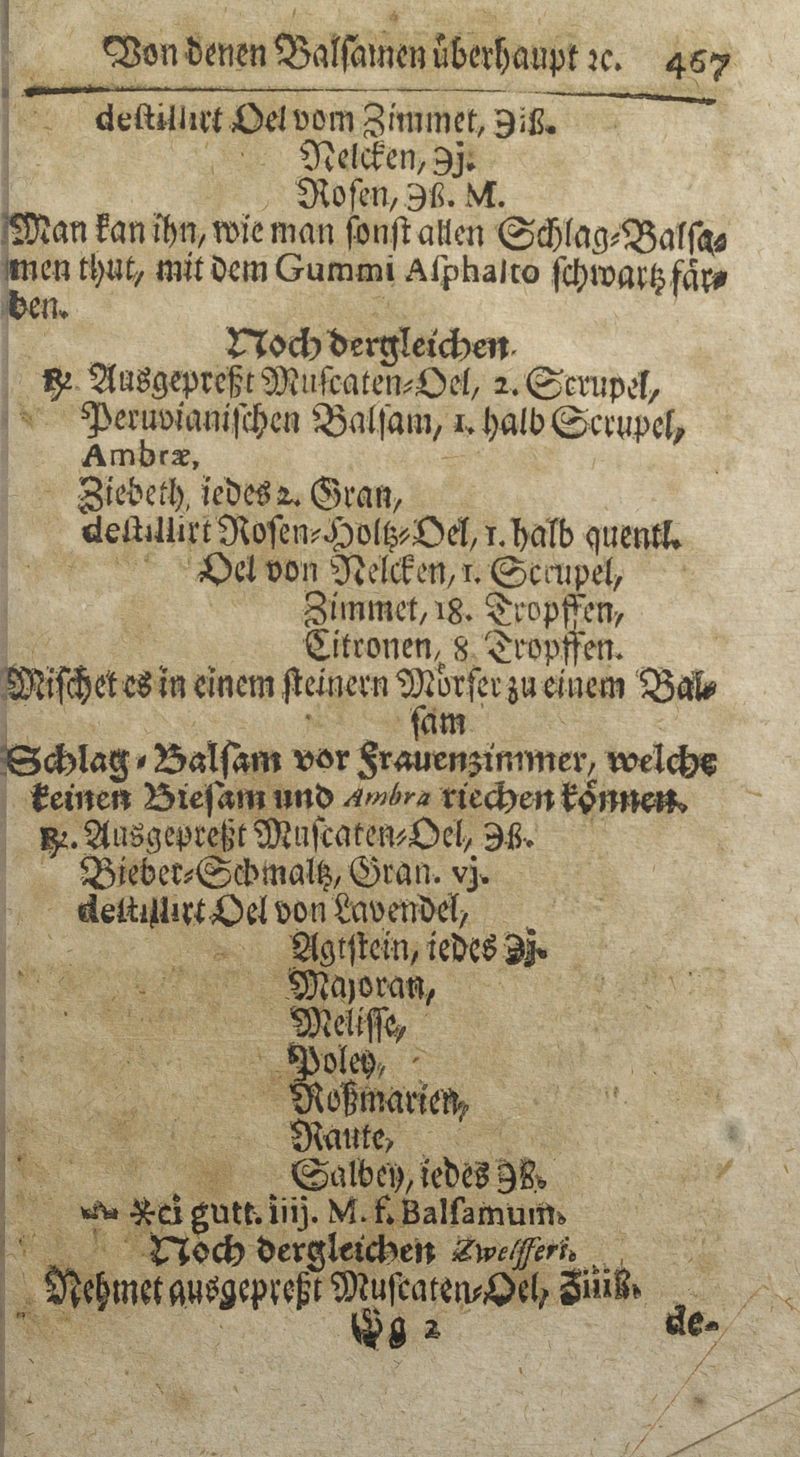 Von denen Balſamen uͤberhaupt ꝛc. 467
deſtillirt Oel vom Zimmet, ℈iß.
Nelcken, ℈j.
Roſen, ℈ß. M.
Man kan ihn, wie man ſonſt allen Schlag⸗Balſa⸗
men thut, mit dem Gummi Aſphalto ſchwartz faͤr⸗
ben.
Noch dergleichen.
℞. Ausgepreßt Muſcaten⸗Oel, 2. Scrupel,
Peruvianiſchen Balſam, 1. halb Scrupel,
Ambræ,
Ziebeth, iedes 2. Gran,
deſtillirt Roſen⸗Holtz⸗Oel, 1. halb quentl.
Oel von Nelcken, 1. Scrupel,
Zimmet, 18. Tropffen,
Citronen, 8 Tropffen.
Miſchet es in einem ſteinern Moͤrſer zu einem Bal⸗
ſam
Schlag⸗Balſam vor Frauenzimmer, welche
keinen Bieſam und Ambra riechen koͤnnen.
℞. Ausgepreßt Muſcaten⸗Oel, ℈ß.
Bieber⸗Schmaltz, Gran. vj.
deſtillirt Oel von Lavendel,
Agtſtein, iedes ℈j.
Majoran,
Meliſſe,
Poley,
Roßmarien,
Raute,
Salbey, iedes ℈ß.
🜍 ✱ci gutt. iiij. M. f. Balſamum.
Noch dergleichen Zwelfferi.
Nehmet ausgepreßt Muſcaten⸗Oel, ʒiiiß.
Gg 2 de-